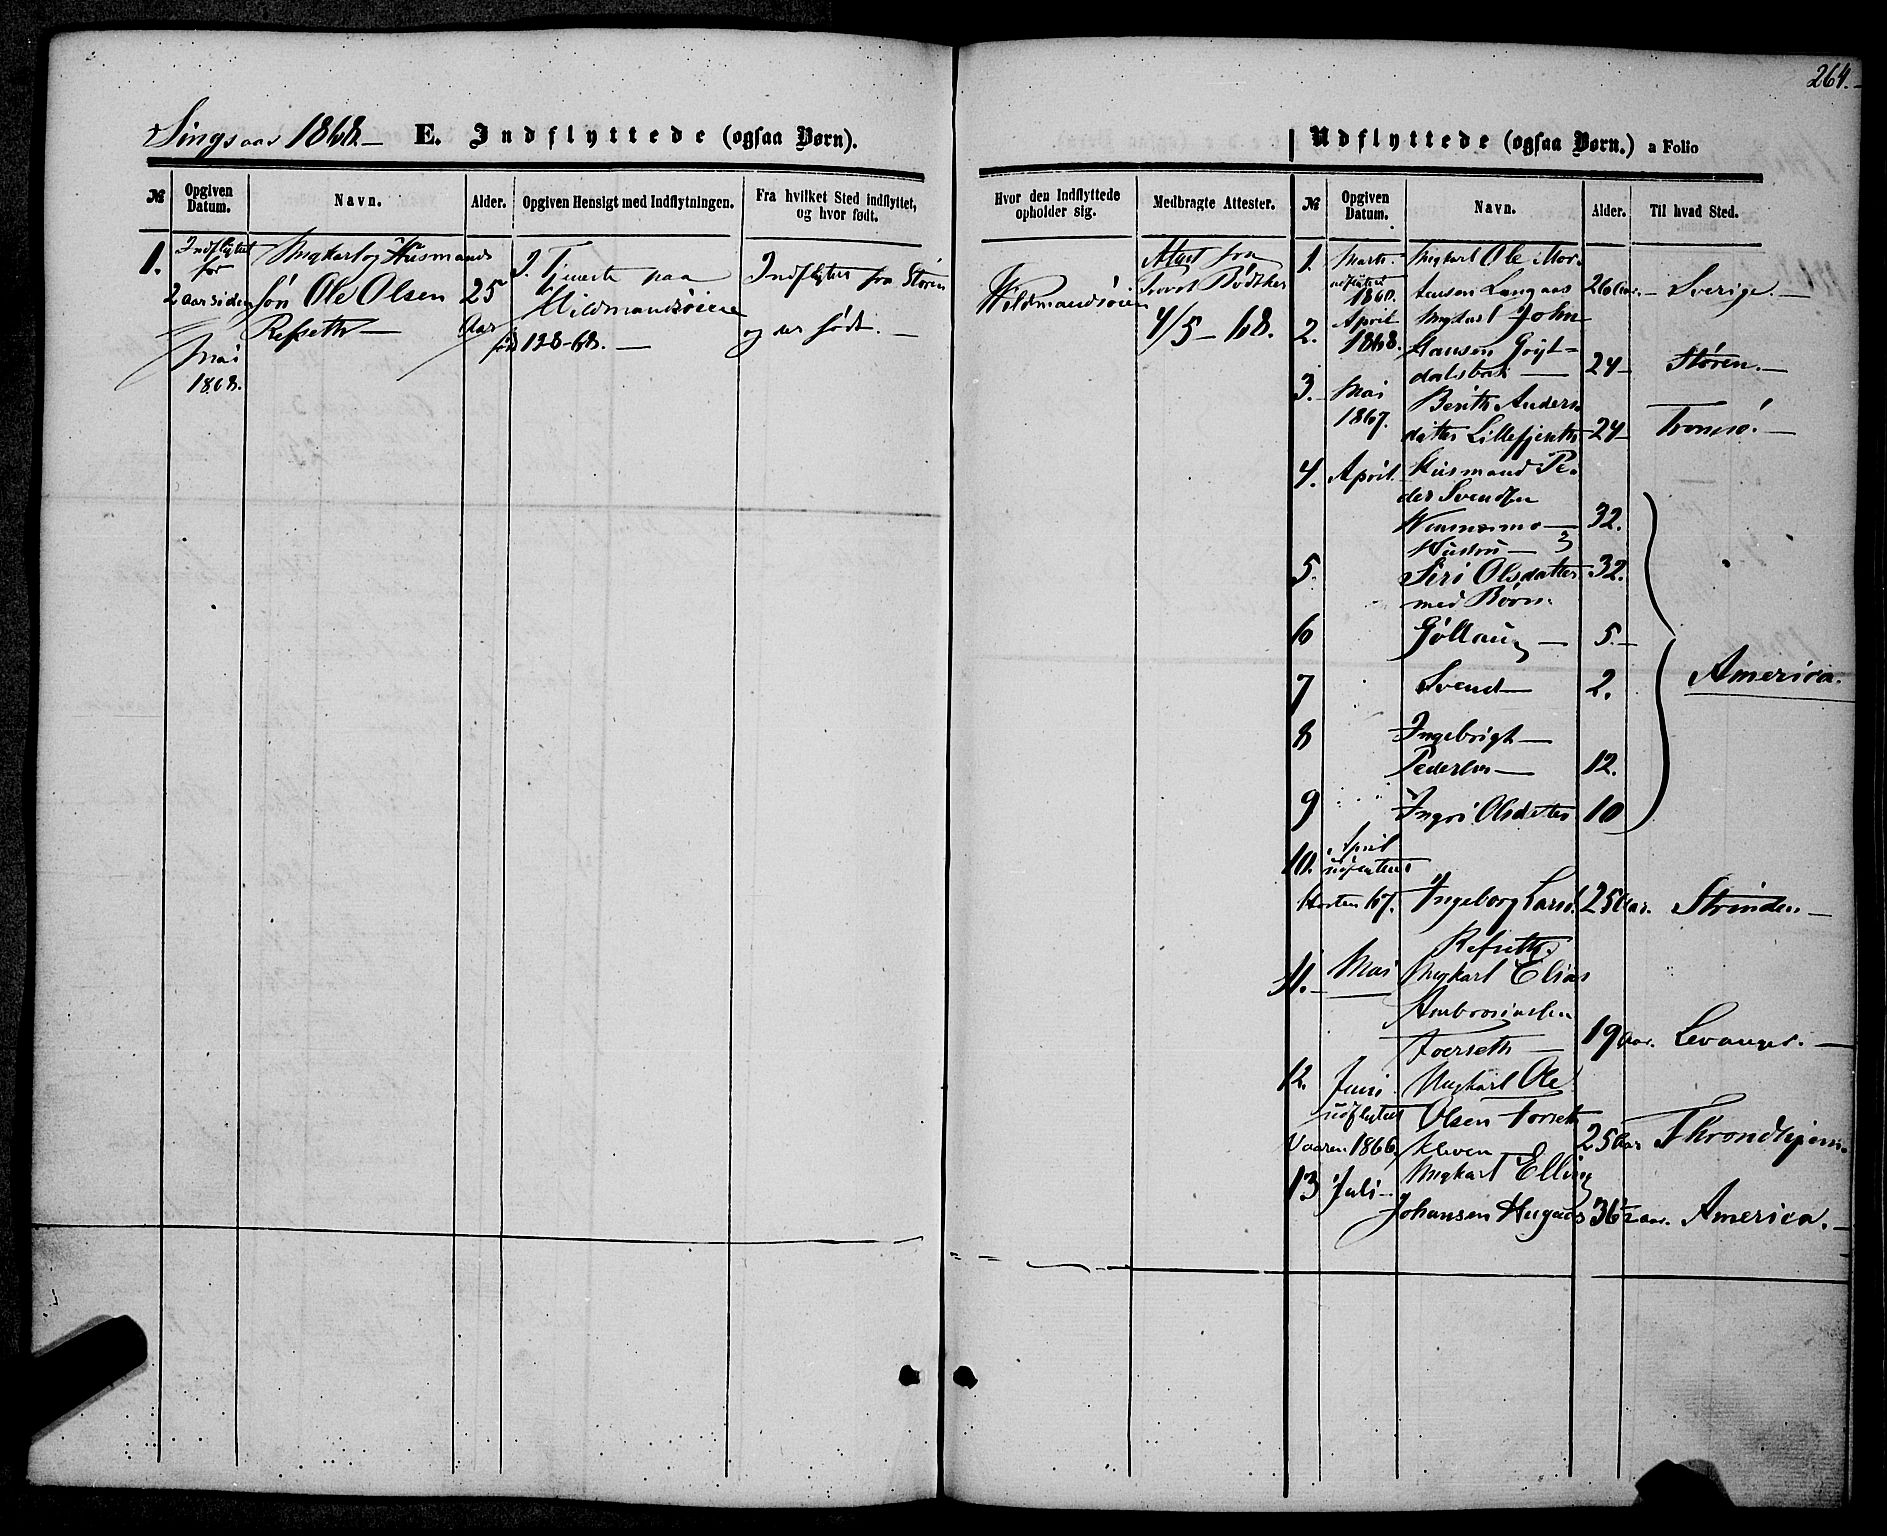 264.
Singsaas 1868 – E. Indflyttede (ogsaa Børn).
№ Opgiven Datum. Navn. Alder. Opgiven Hensigt med Indflytningen. Fra hvilket Sted indflyttet, og hvor født.
1. Indflyttet Ungkarl og Husmands
for
2 aar siden søn Ole Olsen 25 I Tjeneste paa Indflyttet fra Støren
Refseth — Aar Vildmandsøien og er født. —
Mai 128-68. —
1868.
Udflyttede (ogsaa Børn.) a Folio
Hvor den Indflyttede opholder sig. Medbragte Attester. № Opgiven Datum. Navn. Alder. Til hvad Sted.
Vildmandsøien Attest fra
Provst Bødtker
4/5 – 68.
1. Marts – Ungkarl Ole Mor-
udflyttet
1860. tensen Langaas 26 Aar. – Sverige. –
2. April Ungkarl John
1868. Hansen
dalsbak — 24 – Støren. –
3. Mai Berith Anders-
1867. datter Lillefjerth 24 – Tromsø. –
4. April. Husmand Pe-
der Svendsen
— 32.
Hustru —
5. Siri Olsdatter 32.
med Børn.
6 Gøllaug — 5. –
America.
7 Svend — 2.
8 Ingebrigt —
Pedersen — 12.
9 Ingri Olsdatter 10
10. April
udflyttet
Høsten 67. Ingeborg Larsd. 25 Aar. Strinden –
Refseth.
11. – Mai Ungkarl Elias
Ambrosiussen
— 19 Aar. Levanger. –
12. Juni Ungkarl Ole
udflyttet Olsen Forseth
Vaaren 1866. kleven 25 Aar Throndhjem.
13 Juli – Ungkarl Elling
Johansen Hugaas 36 1/2 aar. America. –